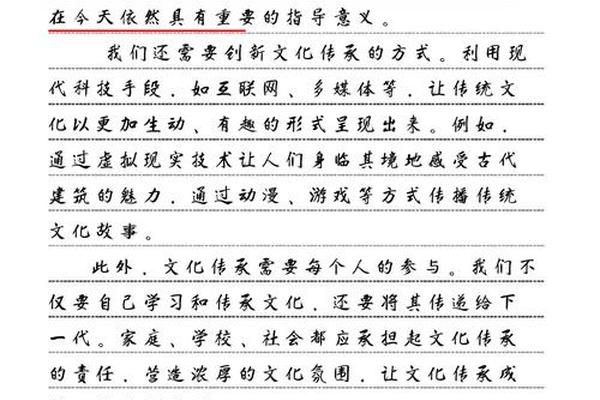 在今天依然具有重要的指导意义。
我们还需要创新文化传承的方式。利用现
代科技手段，如互联网、多媒体等，让传统文
化以更加生动、有趣的形式呈现出来。例如，
通过虚拟现实技术让人们身临其境地感受古代
建筑的魅力，通过动漫、游戏等方式传播传统
文化故事。
此外，文化传承需要每个人的参与。我们不
仅要自己学习和传承文化，还要将其传递给下
一代。家庭、学校、社会都应承担起文化传承
的责任，营造浓厚的文化氛围，让文化传承成